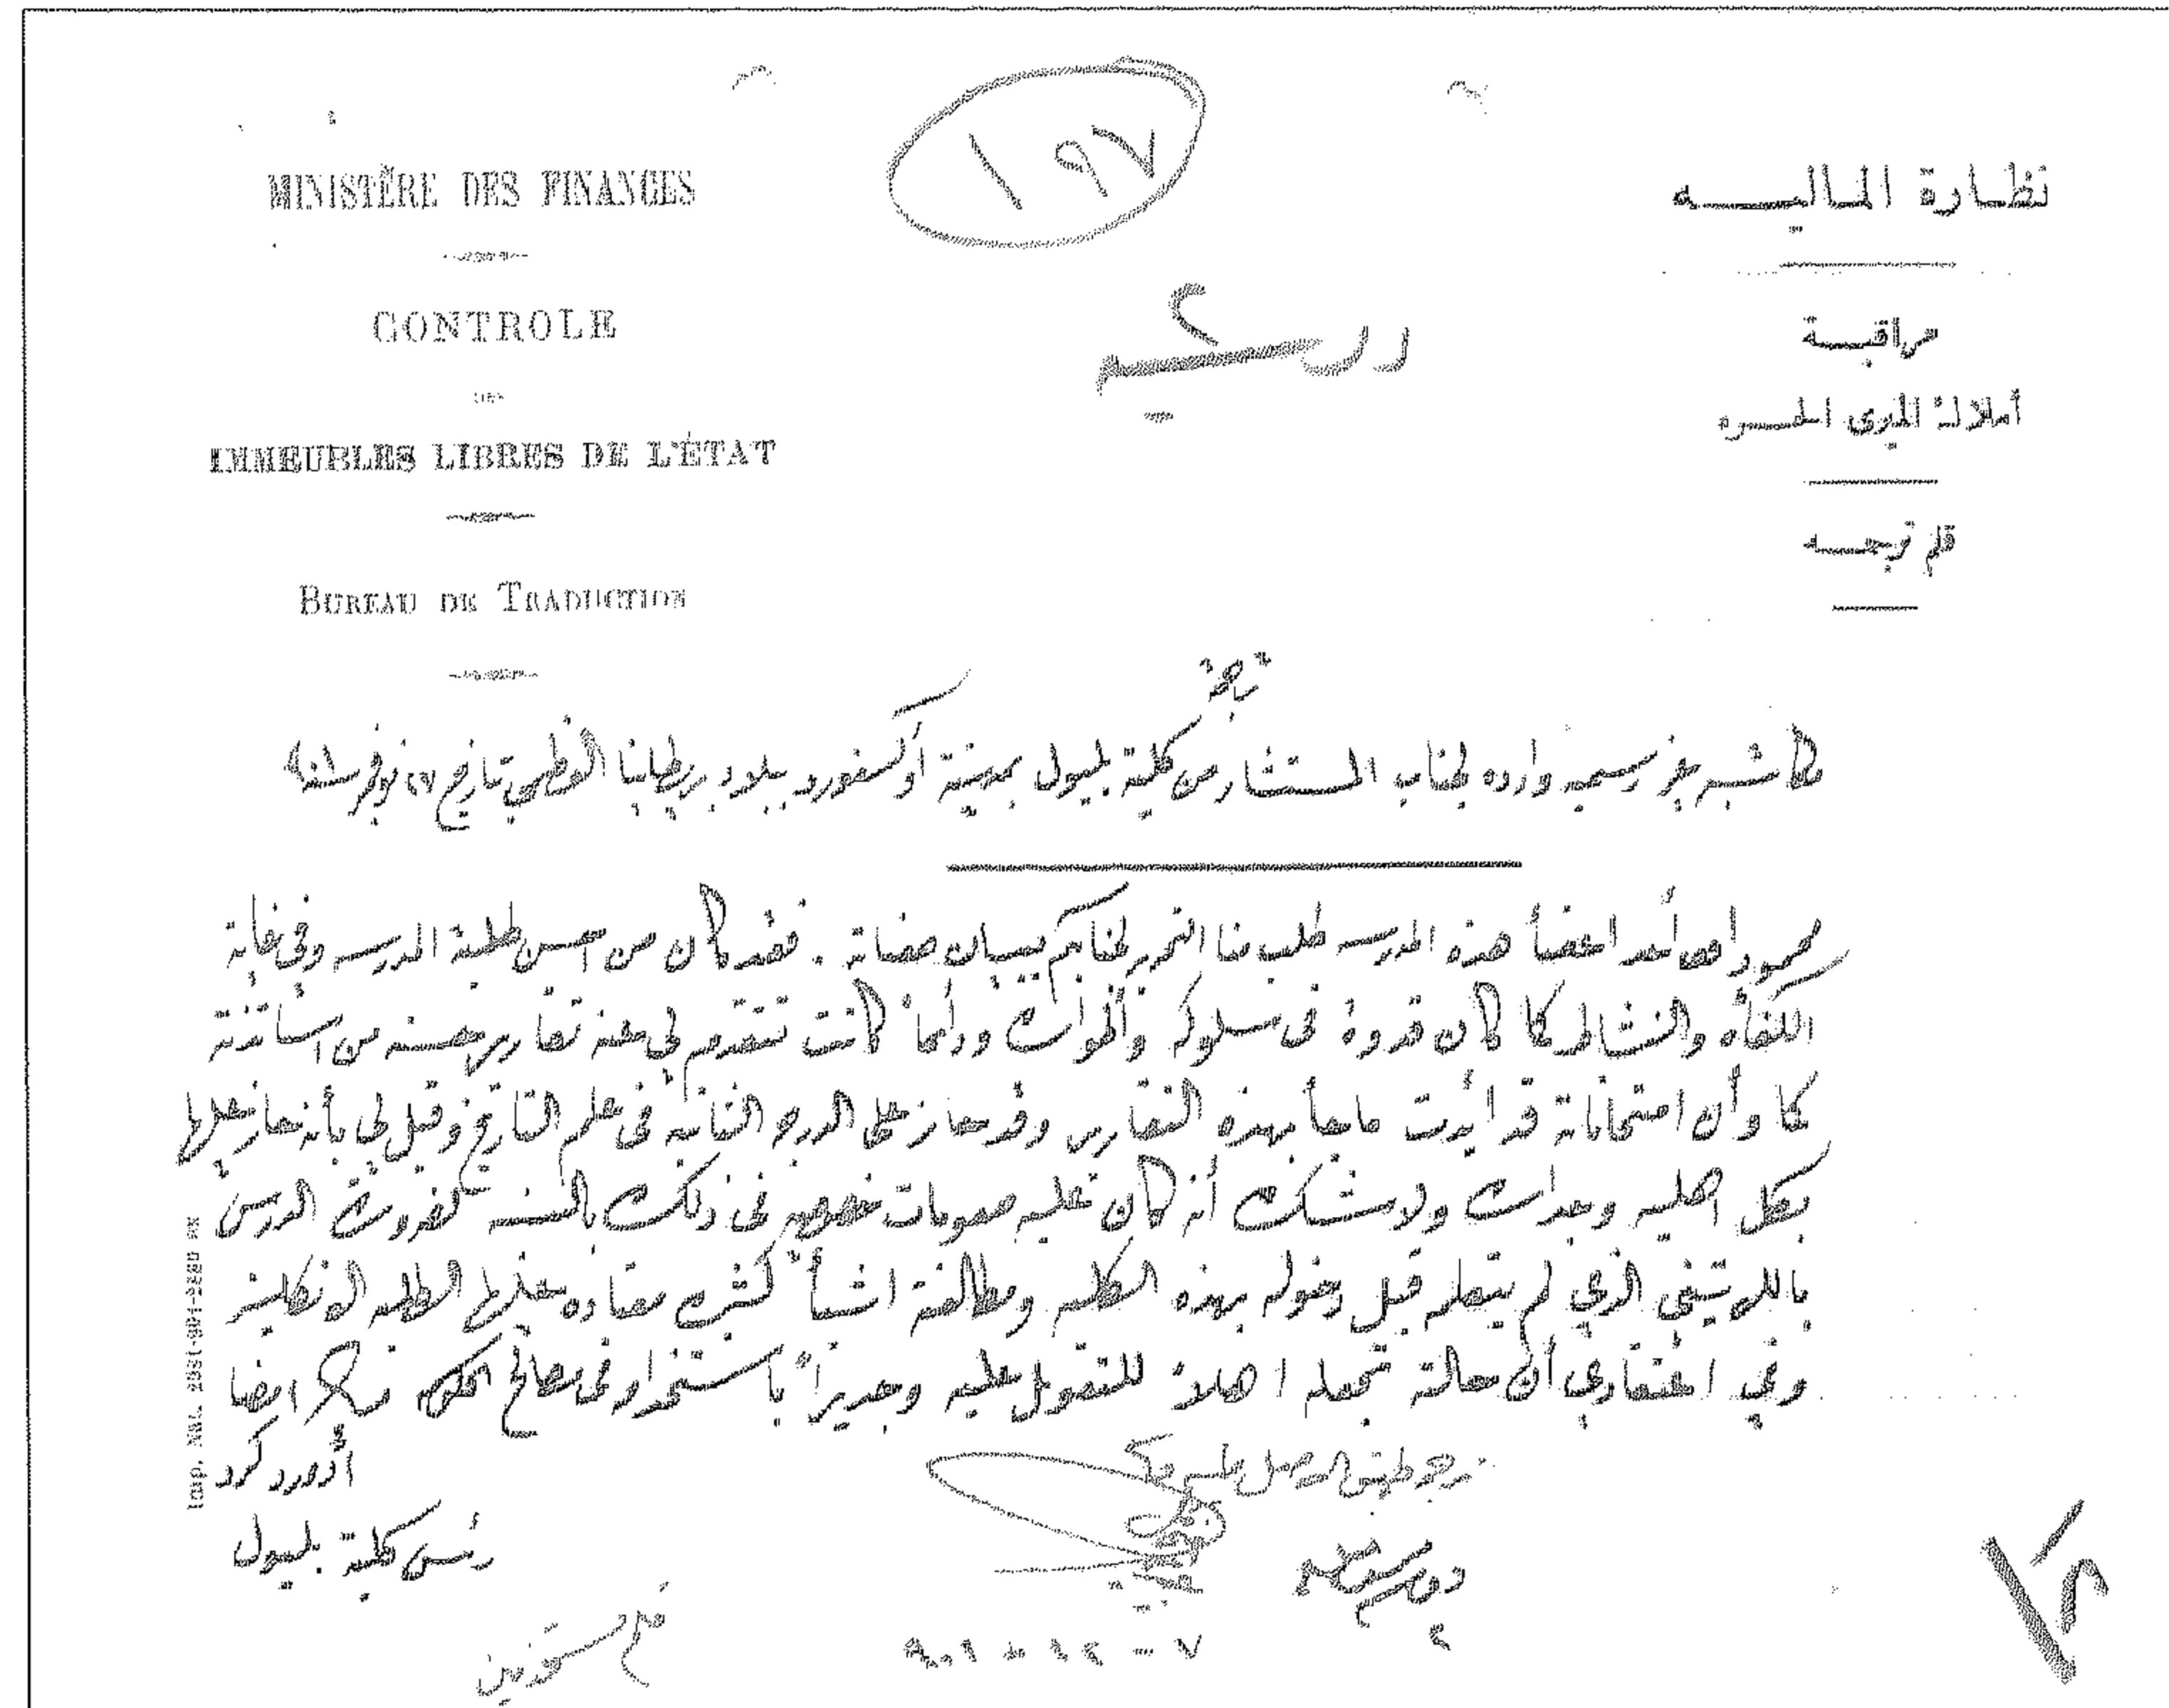 ١٩٧
MINISTÈRE DES FINANCES
CONTROLE
DES
IMMEUBLES LIBRES DE L'ÉTAT
BUREAU DE TRADUCTION
نظارة الماليه
مراقبة
أملاك الميرى الحره
قلم ترجمه
ترجمة
مكاتبه غير رسميه وارده لجناب المستشار من كلية بليول بمدينة أوكسفورد ببلاد بريطانيا العظمى بتاريخ ٢٧ نوفمبر سنة ٩٠١
محمود أحد اعضأ هذه المدرسه طلب منا التحرير لجنابكم ببيان صفاته . فقد كان من احسن طلبة المدرسه وفى غاية
الكفأه والنشاط كما كان قدوة فى سلوكه ودأما كانت تتقدم لى عنه تقارير حسنه من اساتذته
كما وأن امتحاناته قد أيدت ماجأ بهذه التقارير وقد حاز على الدرجه الثانيه فى علم التاريخ وقيل لى بأنه حاز عليها
بكل اهليه وجداره ولا شك أنه كان عليه صعوبات خصوصيه فى ذلك بالنسبه لضرورة الدرس
باللاتينى الذى لم يتعلمه قبل دخوله بهذه الكليه ومطالعة اشيأ كثيره معتاده عليها الطلبه الانكليز
وفى اعتقادي أن حالته تجعله اهلاً للتعويل عليه وجديراً باستخدامه فى مصالح الحكومه امضا
أدورد كرد
رئيس كلية بليول
٧ - ١٢ - ٩٠١
قلم مستخدمين
Imp. Nat. 2881-901-2220 ex